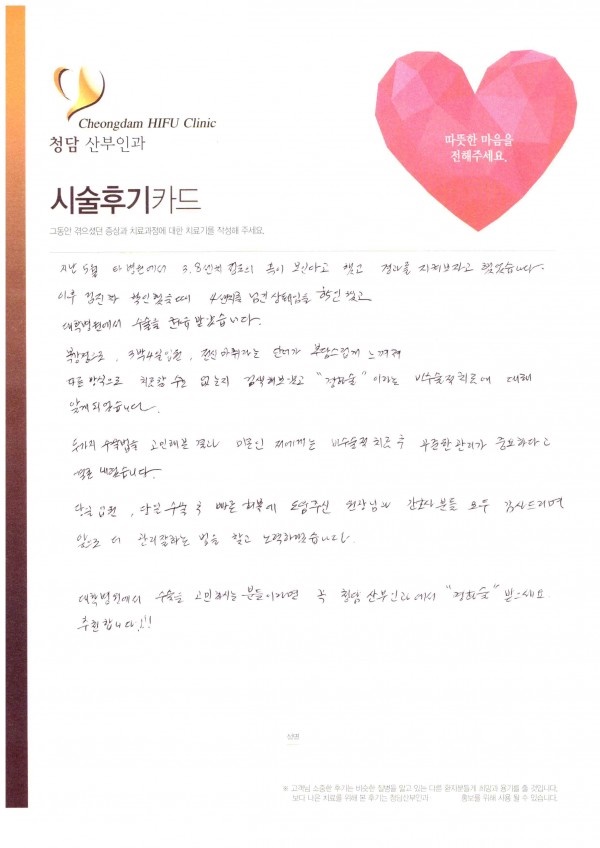 Cheongdam HIFU Clinic
청담 산부인과
따뜻한 마음을
전해주세요.
시술후기카드
그동안 겪으셨던 증상과 치료과정에 대한 치료기를 작성해 주세요.
지난 5월 타병원에서 3.8센치 정도의 혹이 보인다고 했고 경과를 지켜보자고 했었습니다.
이후 검진차 확인했을때 4센치를 넘긴 상태임을 확인했고
대학병원에서 수술을 권유 받았습니다.
복강경으로, 3박4일입원, 전신마취라는 단어가 부담스럽게 느껴져
다른 방식으로 치료할 수는 없는지 검색해보았고 "경화술" 이라는 비수술적치료에 대해
알게되었습니다.
두가지 수술법을 고민해본 결과 미혼인 저에게는 비수술적 치료 후 꾸준한 관리가 중요하다고
결론 내렸습니다.
당일 입원, 당일 수술 후 빠른 회복에 도움주신 원장님과 간호사분들 모두 감사드리며
앞으로 더 관리잘하는 법을 찾고 노력하겠습니다.
대학병원에서 수술을 고민하시는 분들이라면 꼭 청담 산부인과에서 "경화술" 받으세요
추천합니다!!
성명
※ 고객님 소중한 후기는 비슷한 질병을 앓고 있는 다른 환자분들게 희망과 용기를 줄 것입니다.
보다 나은 치료를 위해 본 후기는 청담산부인과 홍보를 위해 사용 될 수 있습니다.